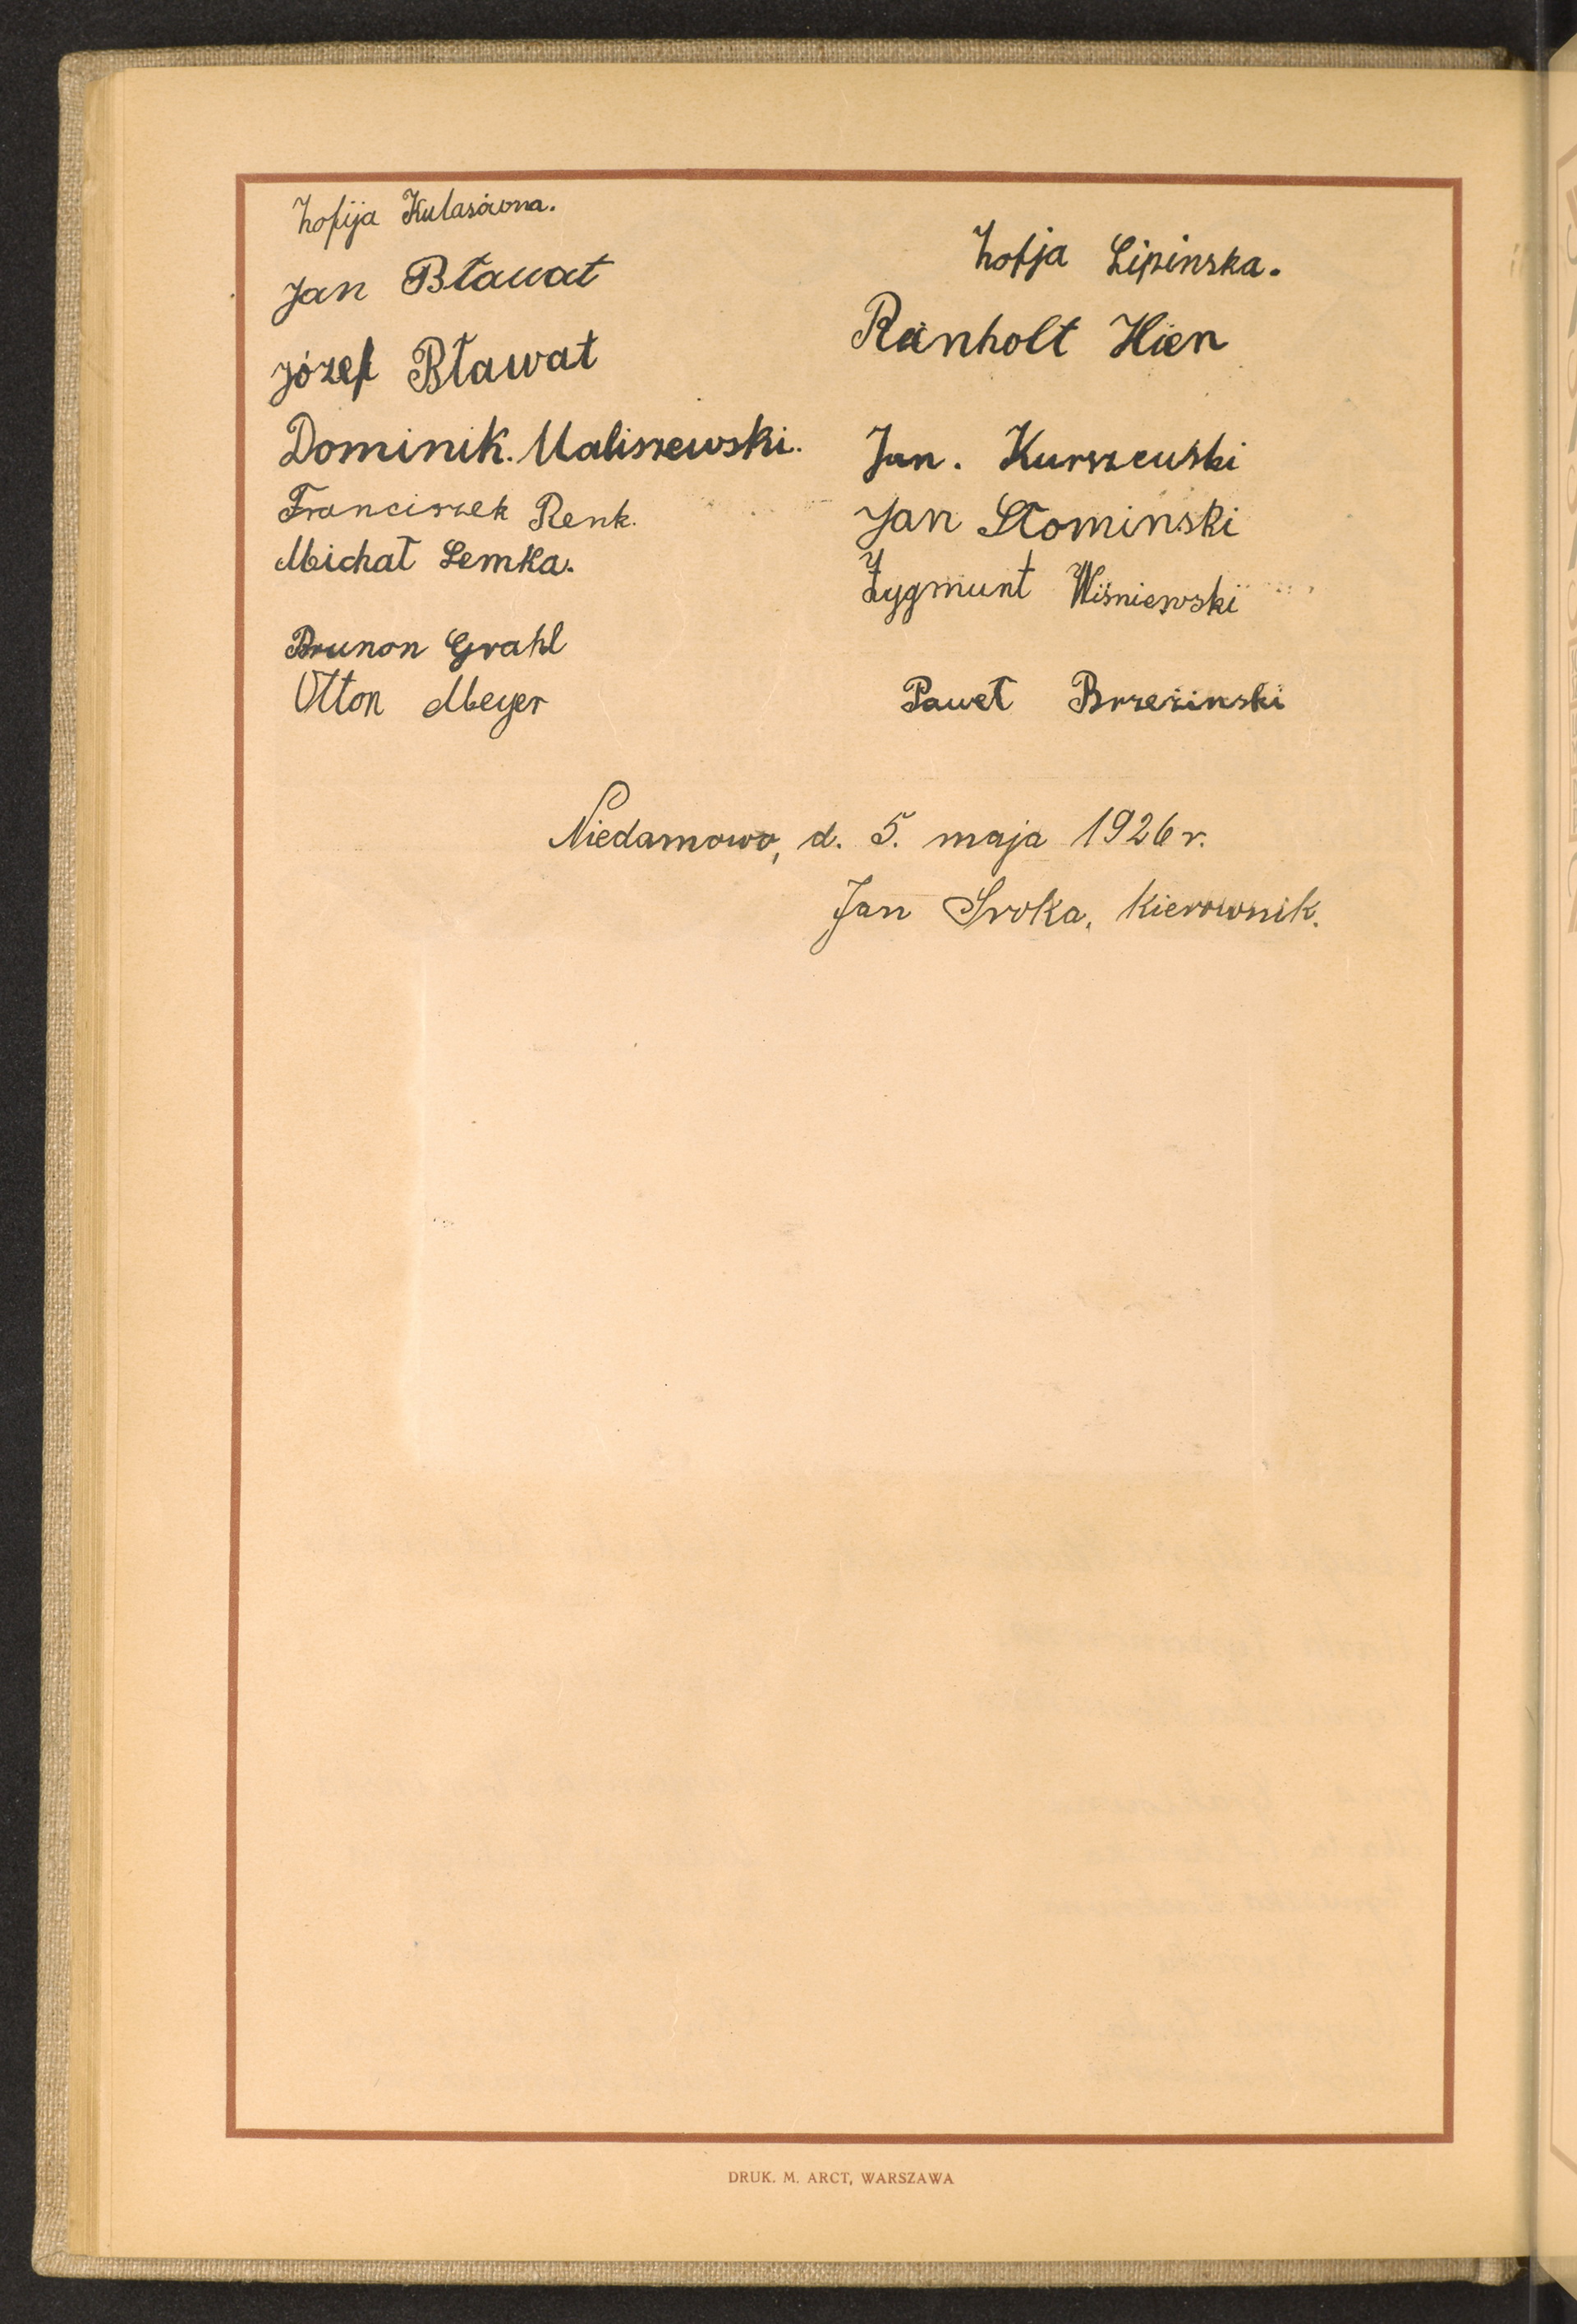 Zofija Kulasówna.
Jan Bławat
Józef Bławat
Dominik. Maliszewski.
Franciszek Renk.
Michał Lemka.
Brunon Grahl
Otton Meyer
Zofja Lipinska.
Rainholt Hien
Jan. Kurszewski
Jan Słominski
Zygmunt Wiśniewski
Paweł Brzezinski
Niedamowo, d. 5. maja 1926 r.
Jan Sroka, kierownik.
DRUK. M. ARCT, WARSZAWA